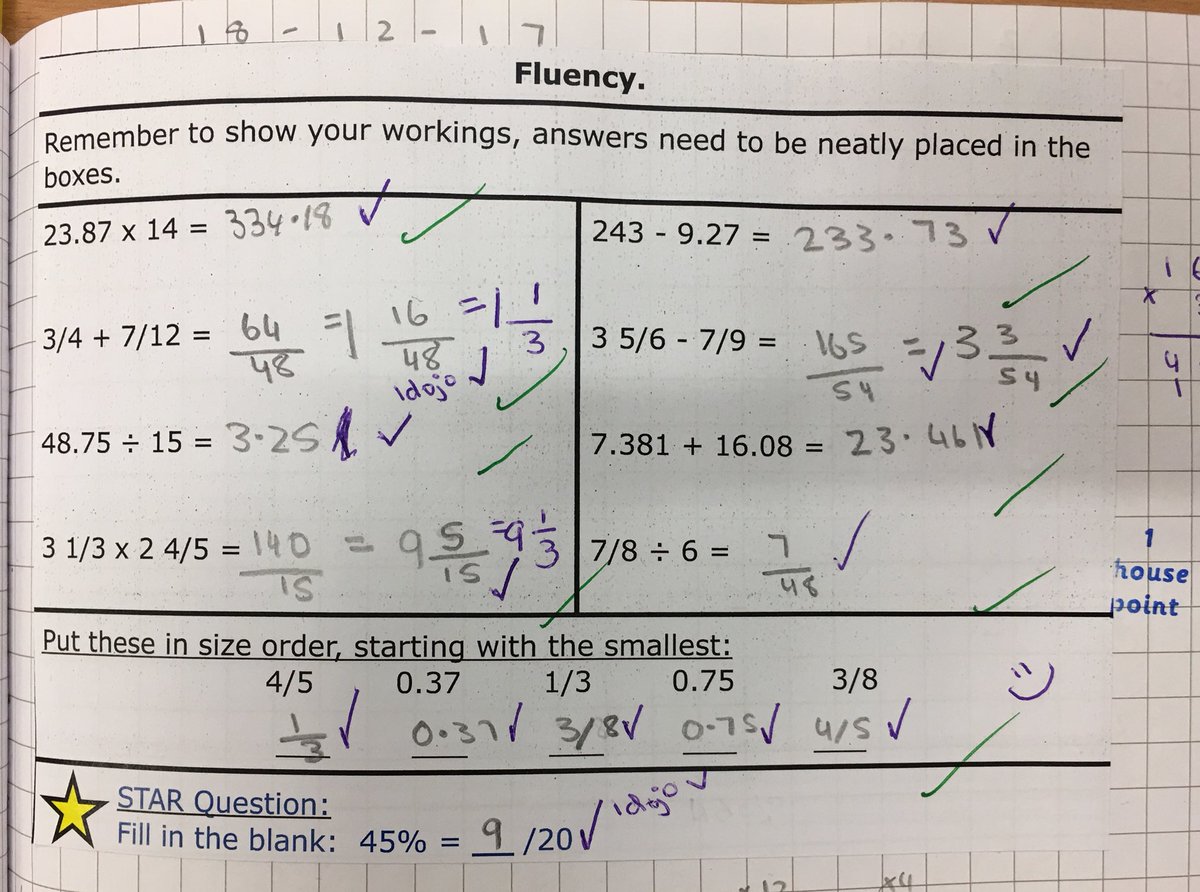 18-12-17
Fluency.
Remember to show your workings, answers need to be neatly placed in the
boxes.
23.87 x 14 = 334.18 ✓
243 - 9.27 = 233.73 ✓
3/4 + 7/12 = 64/48 = 1 16/48 = 1 1/3
1dojo ✓
3 5/6 - 7/9 = 165/54 = 3 3/54 ✓
48.75 ÷ 15 = 3.25 ✓
7.381 + 16.08 = 23.461 ✓
3 1/3 x 2 4/5 = 140/15 = 9 5/15 = 9 1/3 ✓
7/8 ÷ 6 = 7/48 ✓
1
house
point
Put these in size order, starting with the smallest:
4/5 0.37 1/3 0.75 3/8
1/3 ✓ 0.37 ✓ 3/8 ✓ 0.75 ✓ 4/5 ✓
STAR Question:
Fill in the blank: 45% = 9 /20 ✓ 1dojo ✓
x4